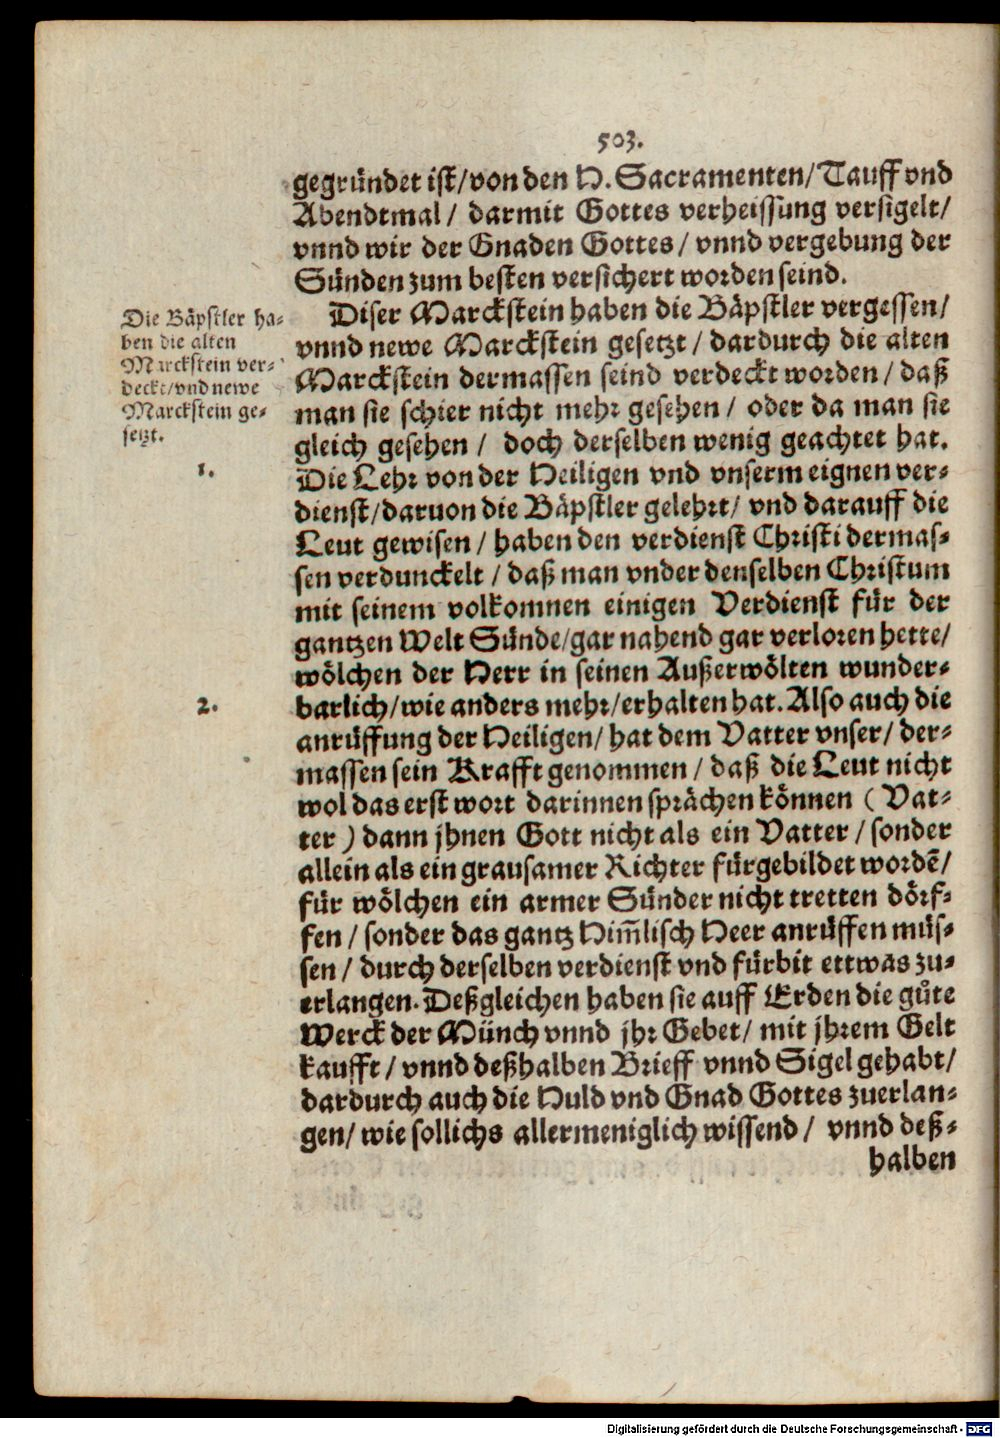 503.
gegründet ist/von den H. Sacramenten/Tauff vnd
Abendtmal/ darmit Gottes verheissung versigelt/
vnnd wir der Gnaden Gottes/ vnnd vergebung der
Sünden zum besten versichert worden seind.
Diser Marckstein haben die Bäpstler vergessen/
vnnd newe Marckstein gesetzt/ dardurch die alten
Marckstein dermassen seind verdeckt worden/ daß
man sie schier nicht mehr gesehen/ oder da man sie
gleich gesehen/ doch derselben wenig geachtet hat.
Die Bäpstler ha-
ben die alten
Marckstein ver-
deckt/vnd newe
Marckstein ge-
setzt.
1.
Die Lehr von der Heiligen vnd vnserm eignen ver-
dienst/daruon die Bäpstler gelehrt/ vnd darauff die
Leut gewisen/ haben den verdienst Christi dermas-
sen verdunckelt/ daß man vnder denselben Christum
mit seinem volkomnen einigen Verdienst für der
gantzen Welt Sünde/gar nahend gar verloren hette/
wölchen der Herr in seinen Außerwölten wunder-
2.
barlich/wie anders mehr/erhalten hat. Also auch die
anrüffung der Heiligen/ hat dem Vatter vnser/ der-
massen sein Krafft genommen/ daß die Leut nicht
wol das erst wort darinnen sprächen können ( Vat-
ter ) dann jhnen Gott nicht als ein Vatter/ sonder
allein als ein grausamer Richter fürgebildet wordē/
für wölchen ein armer Sünder nicht tretten dörf-
fen/ sonder das gantz Him̅lisch Heer anrüffen müs-
sen/ durch derselben verdienst vnd fürbit ettwas zu-
erlangen. Deßgleichen haben sie auff Erden die gůte
Werck der Münch vnnd jhr Gebet/ mit jhrem Gelt
kaufft/ vnnd deßhalben Brieff vnnd Sigel gehabt/
dardurch auch die Huld vnd Gnad Gottes zuerlan-
gen/ wie sollichs allermeniglich wissend/ vnnd deß-
halben
Digitalisierung gefördert durch die Deutsche Forschungsgemeinschaft - DFG